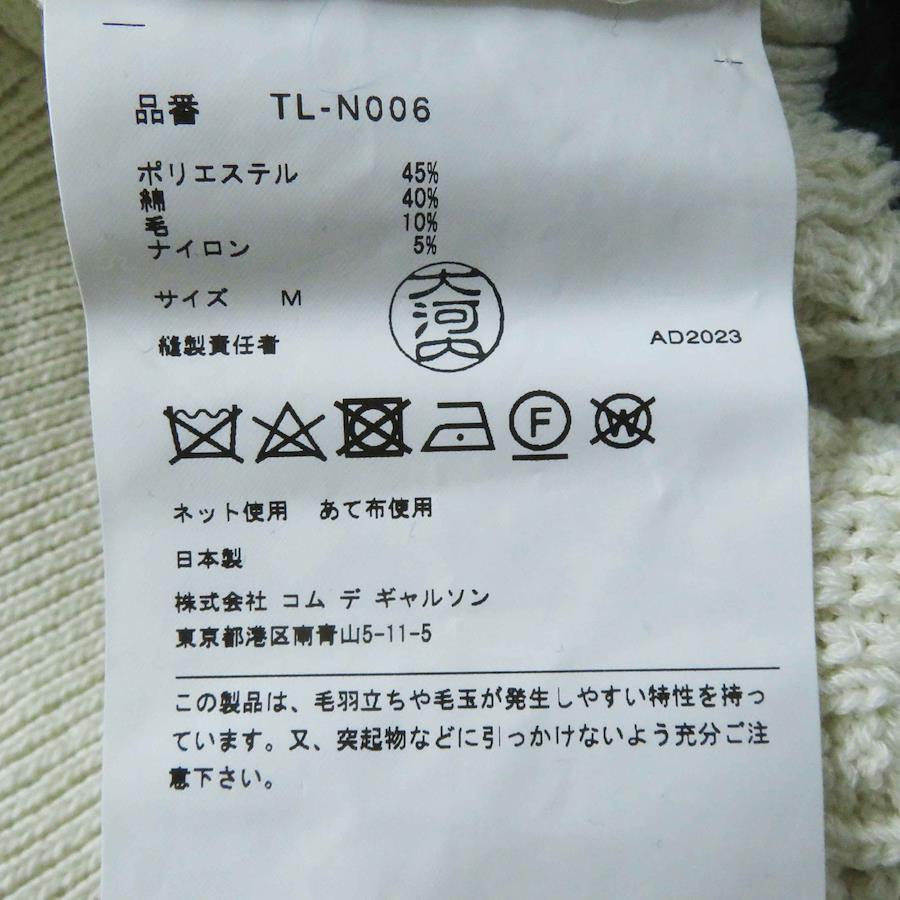 品番 TL-N006
ポリエステル 45%
綿 40%
毛 10%
ナイロン 5%
サイズ M
縫製責任者 大河内 AD2023
F W
ネット使用 あて布使用
日本製
株式会社 コム デ ギャルソン
東京都港区南青山5-11-5
この製品は、毛羽立ちや毛玉が発生しやすい特性を持っ
ています。又、突起物などに引っかけないよう充分ご注
意下さい。